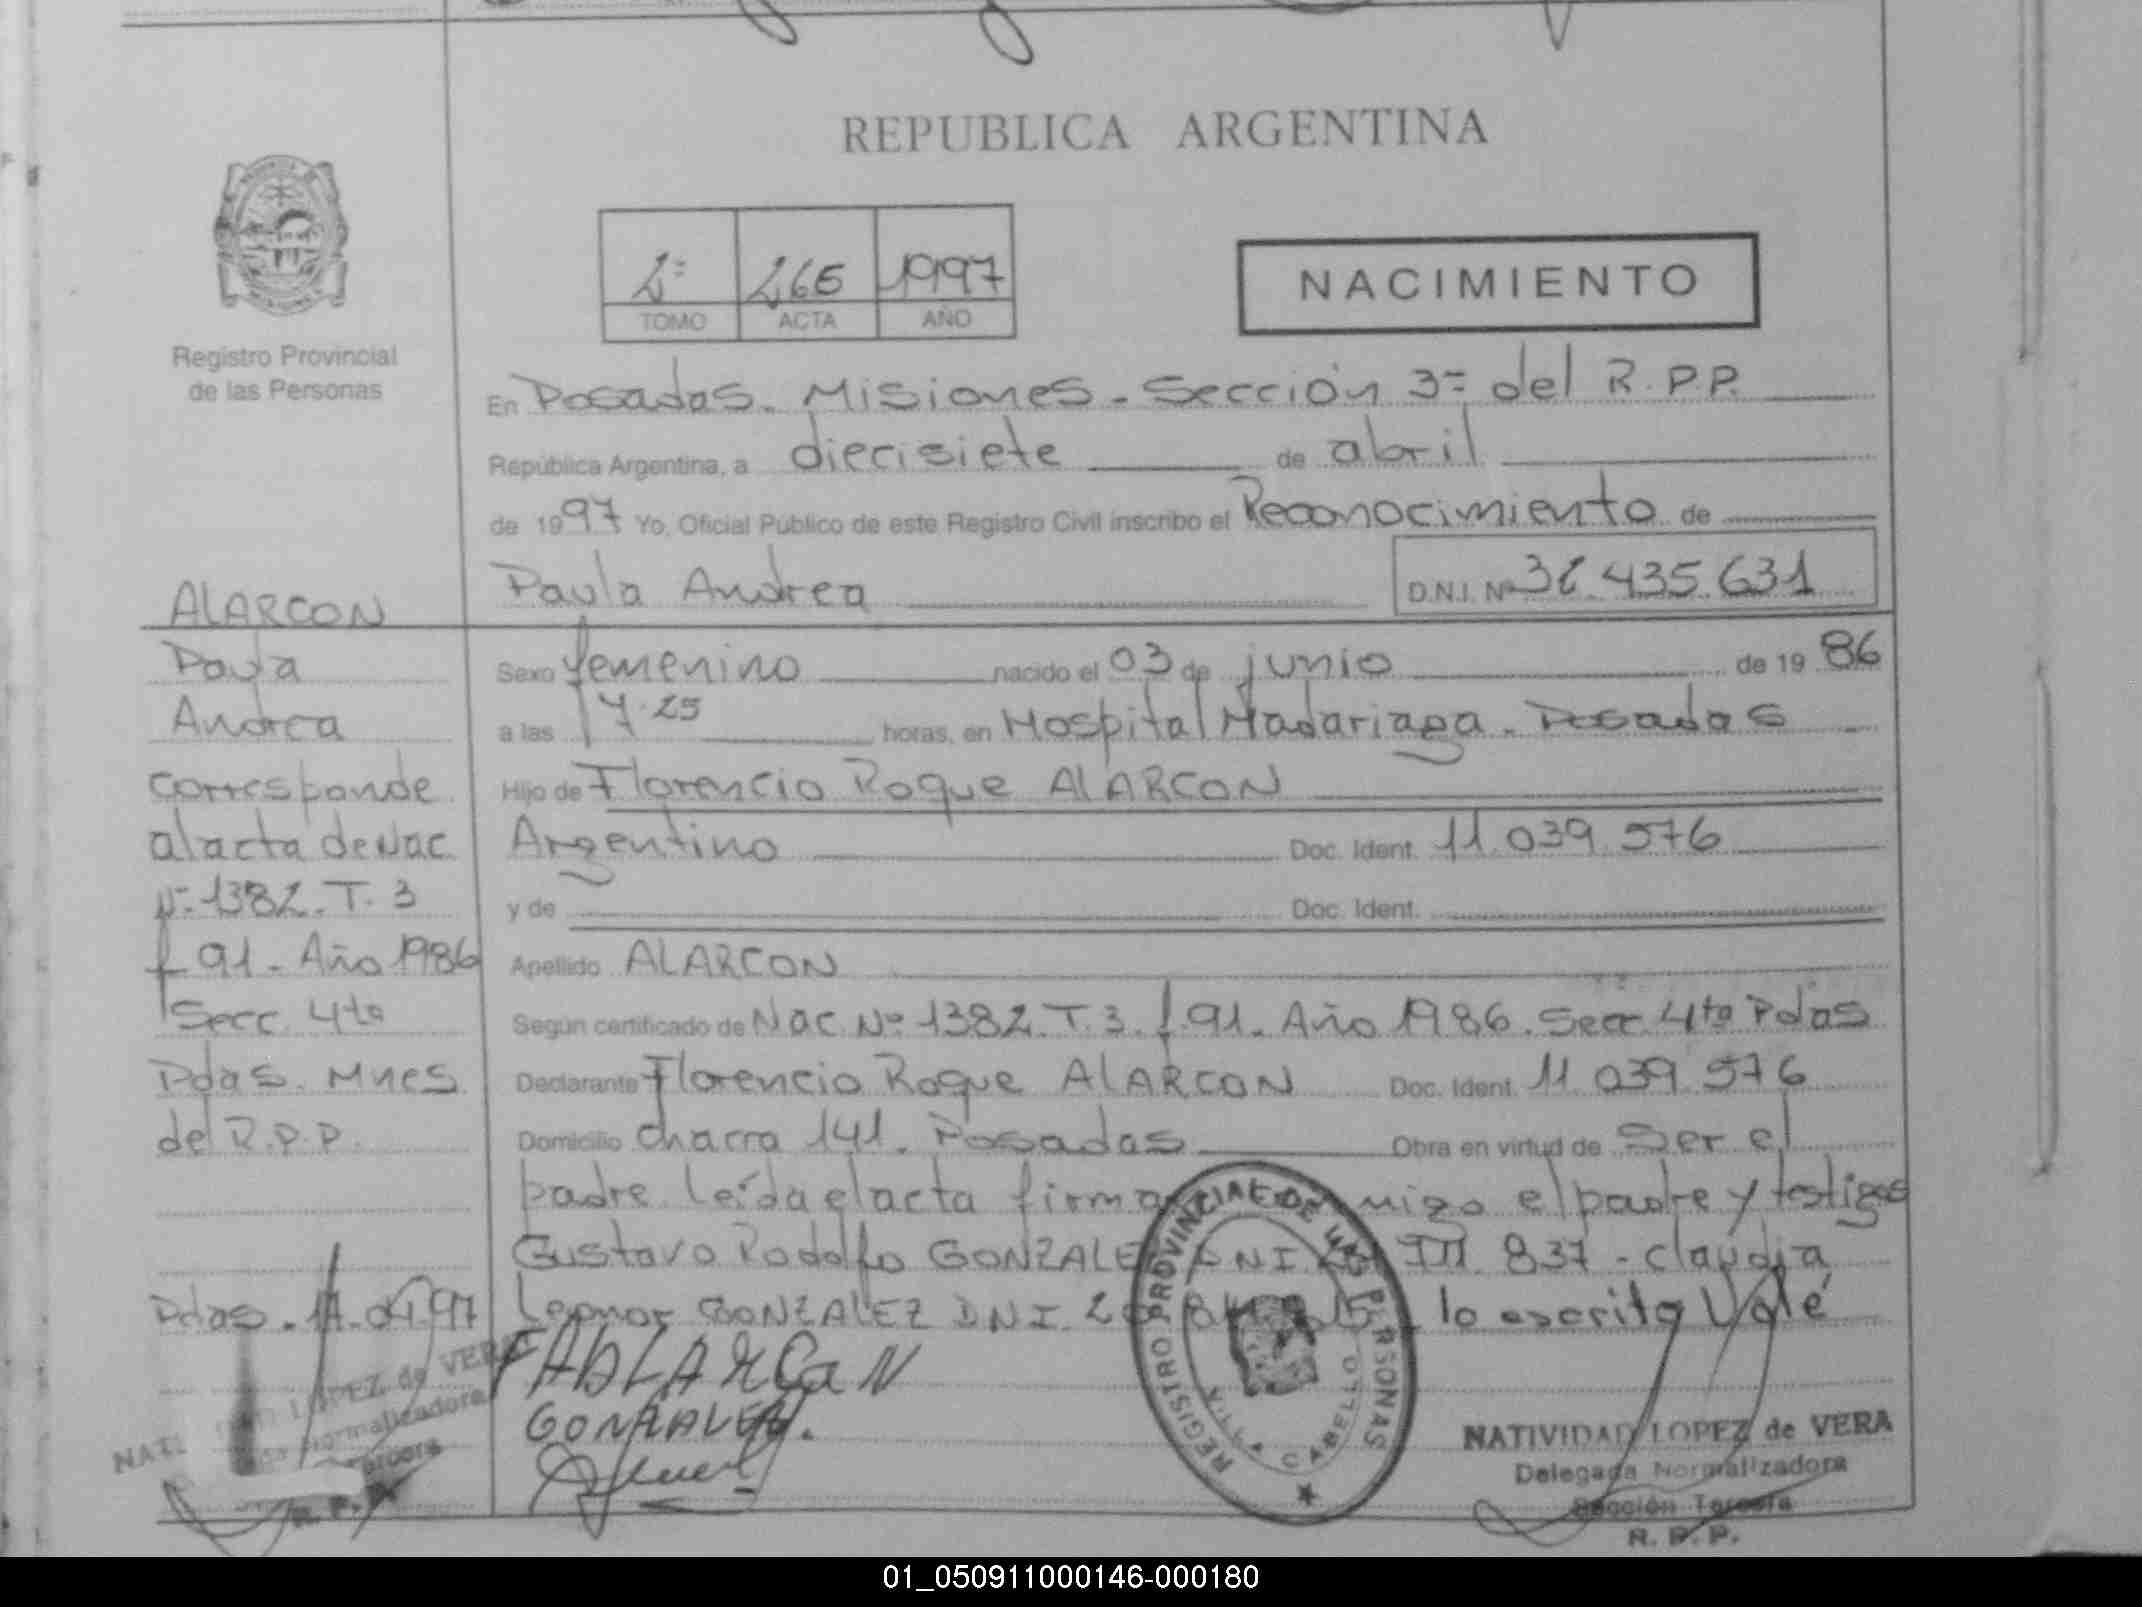 REPUBLICA ARGENTINA
2= 265 1997
TOMO ACTA AÑO
NACIMIENTO
Registro Provincial
de las Personas
En Posadas. Misiones. Sección 3= del R.P.P.
República Argentina, a diecisiete de abril
de 1997 Yo, Oficial Público de este Registro Civil inscribo el Reconocimiento de
Paula Andrea D.N.I. Nº 435.631
Sexo femenino nacido el 03 de junio de 19 86
a las 17.25 horas, en Hospital Madariaga. Posadas
Hijo de Florencio Roque ALARCON
Argentino Doc. Ident. 11.039.576
y de Doc. Ident.
Apellido ALARCON
Según certificado de Nac. Nº 1382. T. 3. f. 91. Año 1986. Secc 4ta Pdas
Declarante Florencio Roque ALARCON Doc. Ident. 11.039.576
Domicilio Chacra 141. Posadas Obra en virtud de Ser el
padre leída el acta firma el padre y testigos
Gustavo Rodolfo GONZALEZ DNI 837 - Claudia
Leonor GONZALEZ DNI. lo escrito Vale
ALARCON
Paula
Andrea
corresponde
al acta de Nac.
Nº 1382. T. 3
f 91. Año 1986
Secc. 4ta
Pdas. Mnes
del R.P.P.
Pdas. 17.04.97
LOPEZ de VERA
Normalizadora
Tercera
R. P. P.
ALARCON
GONZALEZ.
REGISTRO PROVINCIAL DE LAS PERSONAS
CABELLO
NATIVIDAD LOPEZ de VERA
Delegada Normalizadora
Sección Tercera
R. P. P.
01_050911000146-000180